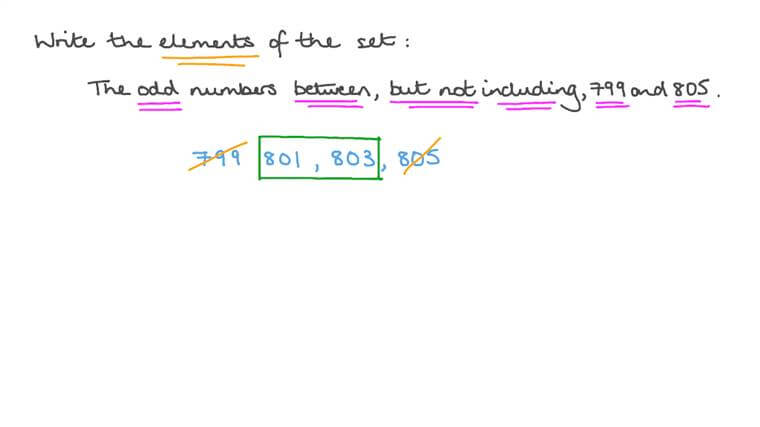 Write the elements of the set:
The odd numbers between, but not including, 799 and 805.
799 801, 803, 805